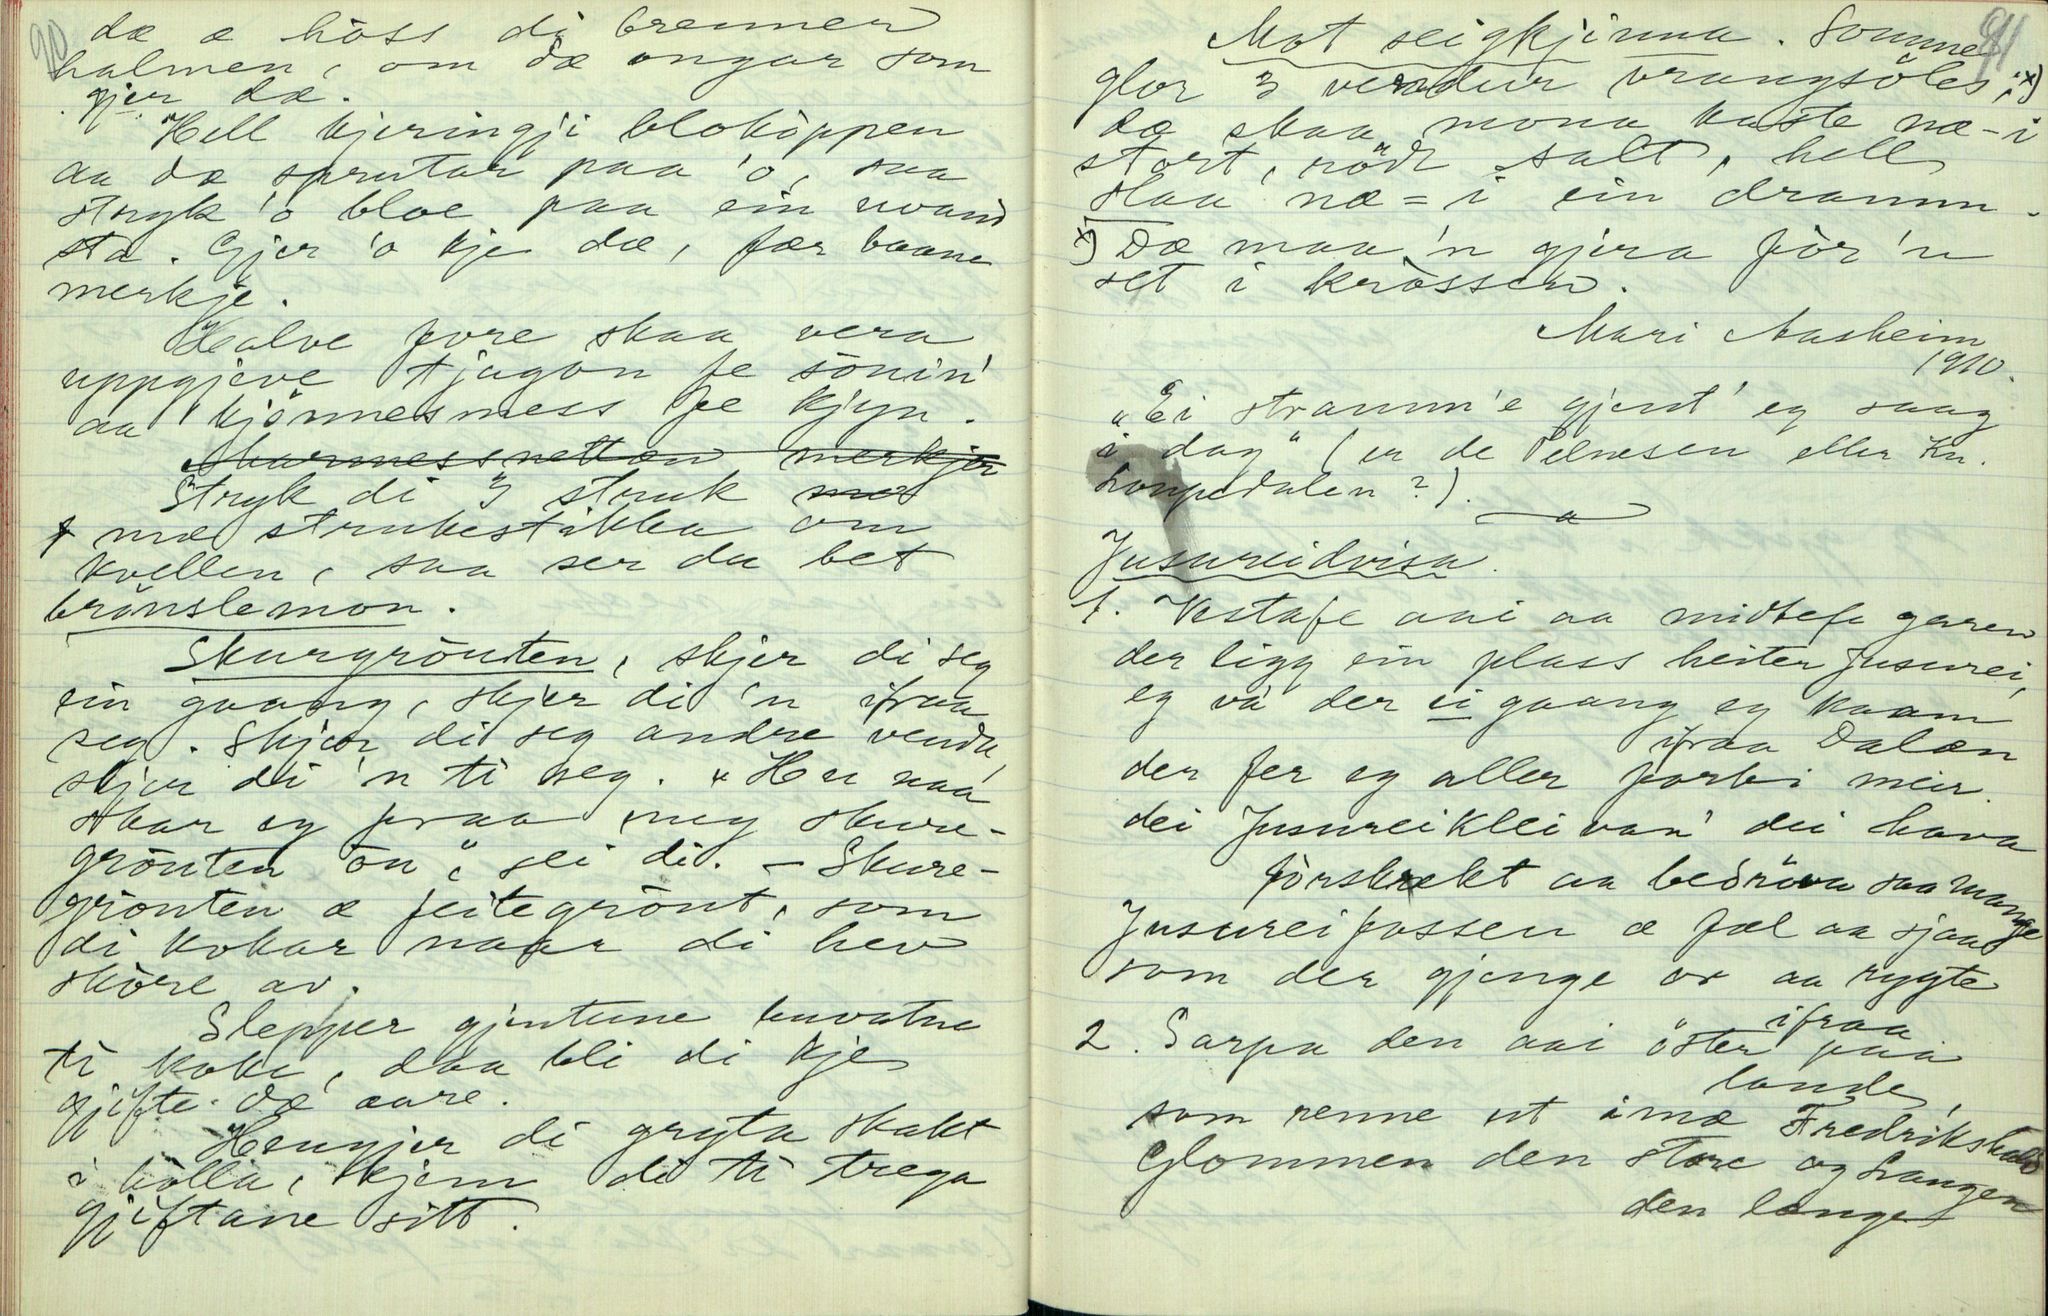 90
dæ æ hòss di brenner
halmen, om dæ ongar som
gjer dæ.
Hell kjeringji blokòppen
aa dæ sprutar paa 'o, saa
stryk 'o bloe paa ein uvand
sta. Gjer 'o kje dæ, fær baane
merkje.
Halve fore skaa vera
uppgjeve tjagon fe sònin'
aa kjönnesmess fe kjyn.
Marmessnetten merkjer
Stryk di 3 struk mæ
mæ strukestikka om
kvellen, saa ser du bet
brönslemon.
Skurgröuten, skjer di seg
ein gaang, skjer di 'n ifraa
seg. Skjer di seg andre vendu,
skjer di 'n ti seg. "Hu naa
skar eg fraa meg skure-
gröuten òn", sei di. – Skure-
gröuten æ feitegröut, som
di kokar naar di hev
skòre av.
Slepper gjentune huvatne
ti koke, daa bli di kje
gjifte dæ aare.
Hengjer di gryta skakt
i hòlla, kjem di ti trega
gjiftane sitt.
91
Mot seigkjinna. Somme
glor 3 vendur vrangsöles; x)
dæ skaa mona kaste næ-i
stort, rödt salt, hell
slaa næ-i ein dramm.
x) Dæ maa 'n gjera för 'n
set i kròssen.
Mari Aasheim
1910.
"Ei stramm'e gjent' eg saag
i dag" (er de Telnesen eller Kn.
Loupedalen?).
Jusureidvisa.
1. Vestafe aai aa midtefe garen
der ligg ein plass heiter Jusurei,
eg va der ei gaang eg kaam
ifraa Dalen
der fer eg aller forbi meir.
dei Jusureikleivan' dei hava
forskrækt aa bedröva saa mange
Jusureifossen æ fæl aa sjaa
som der gjenge or aa rygte
2. Sarpa den aai öster ifraa paa
lande,
som renne ut imæ Fredrikshald
Glommen den store og Laagen
den lange